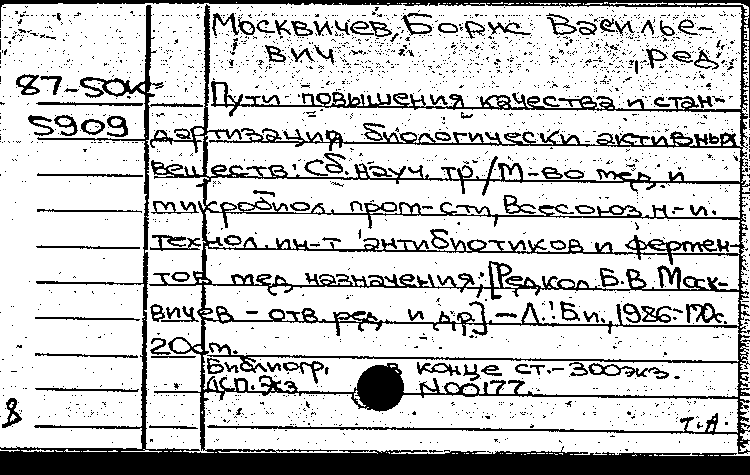 Москвичев, Борис Василье-
вич , ред
87-5ОК-
5909
Пути повышения качества и стан-
дартизация биологически активных
веществ: Сб. науч. тр./М-во мед. и
микробиол. пром-сти, Всесоюз. н.-и.
технол. ин-т антибиотиков и фермен-
тов мед. назначения; [Редкол. Б.В. Моск-
вичев - отв. ред. и др.]. - Л.: Б.и., 1986-170с.
20см.
Библиогр. в конце ст.-300экз.
ДСП. Экз. N00177.
8
Т.А.